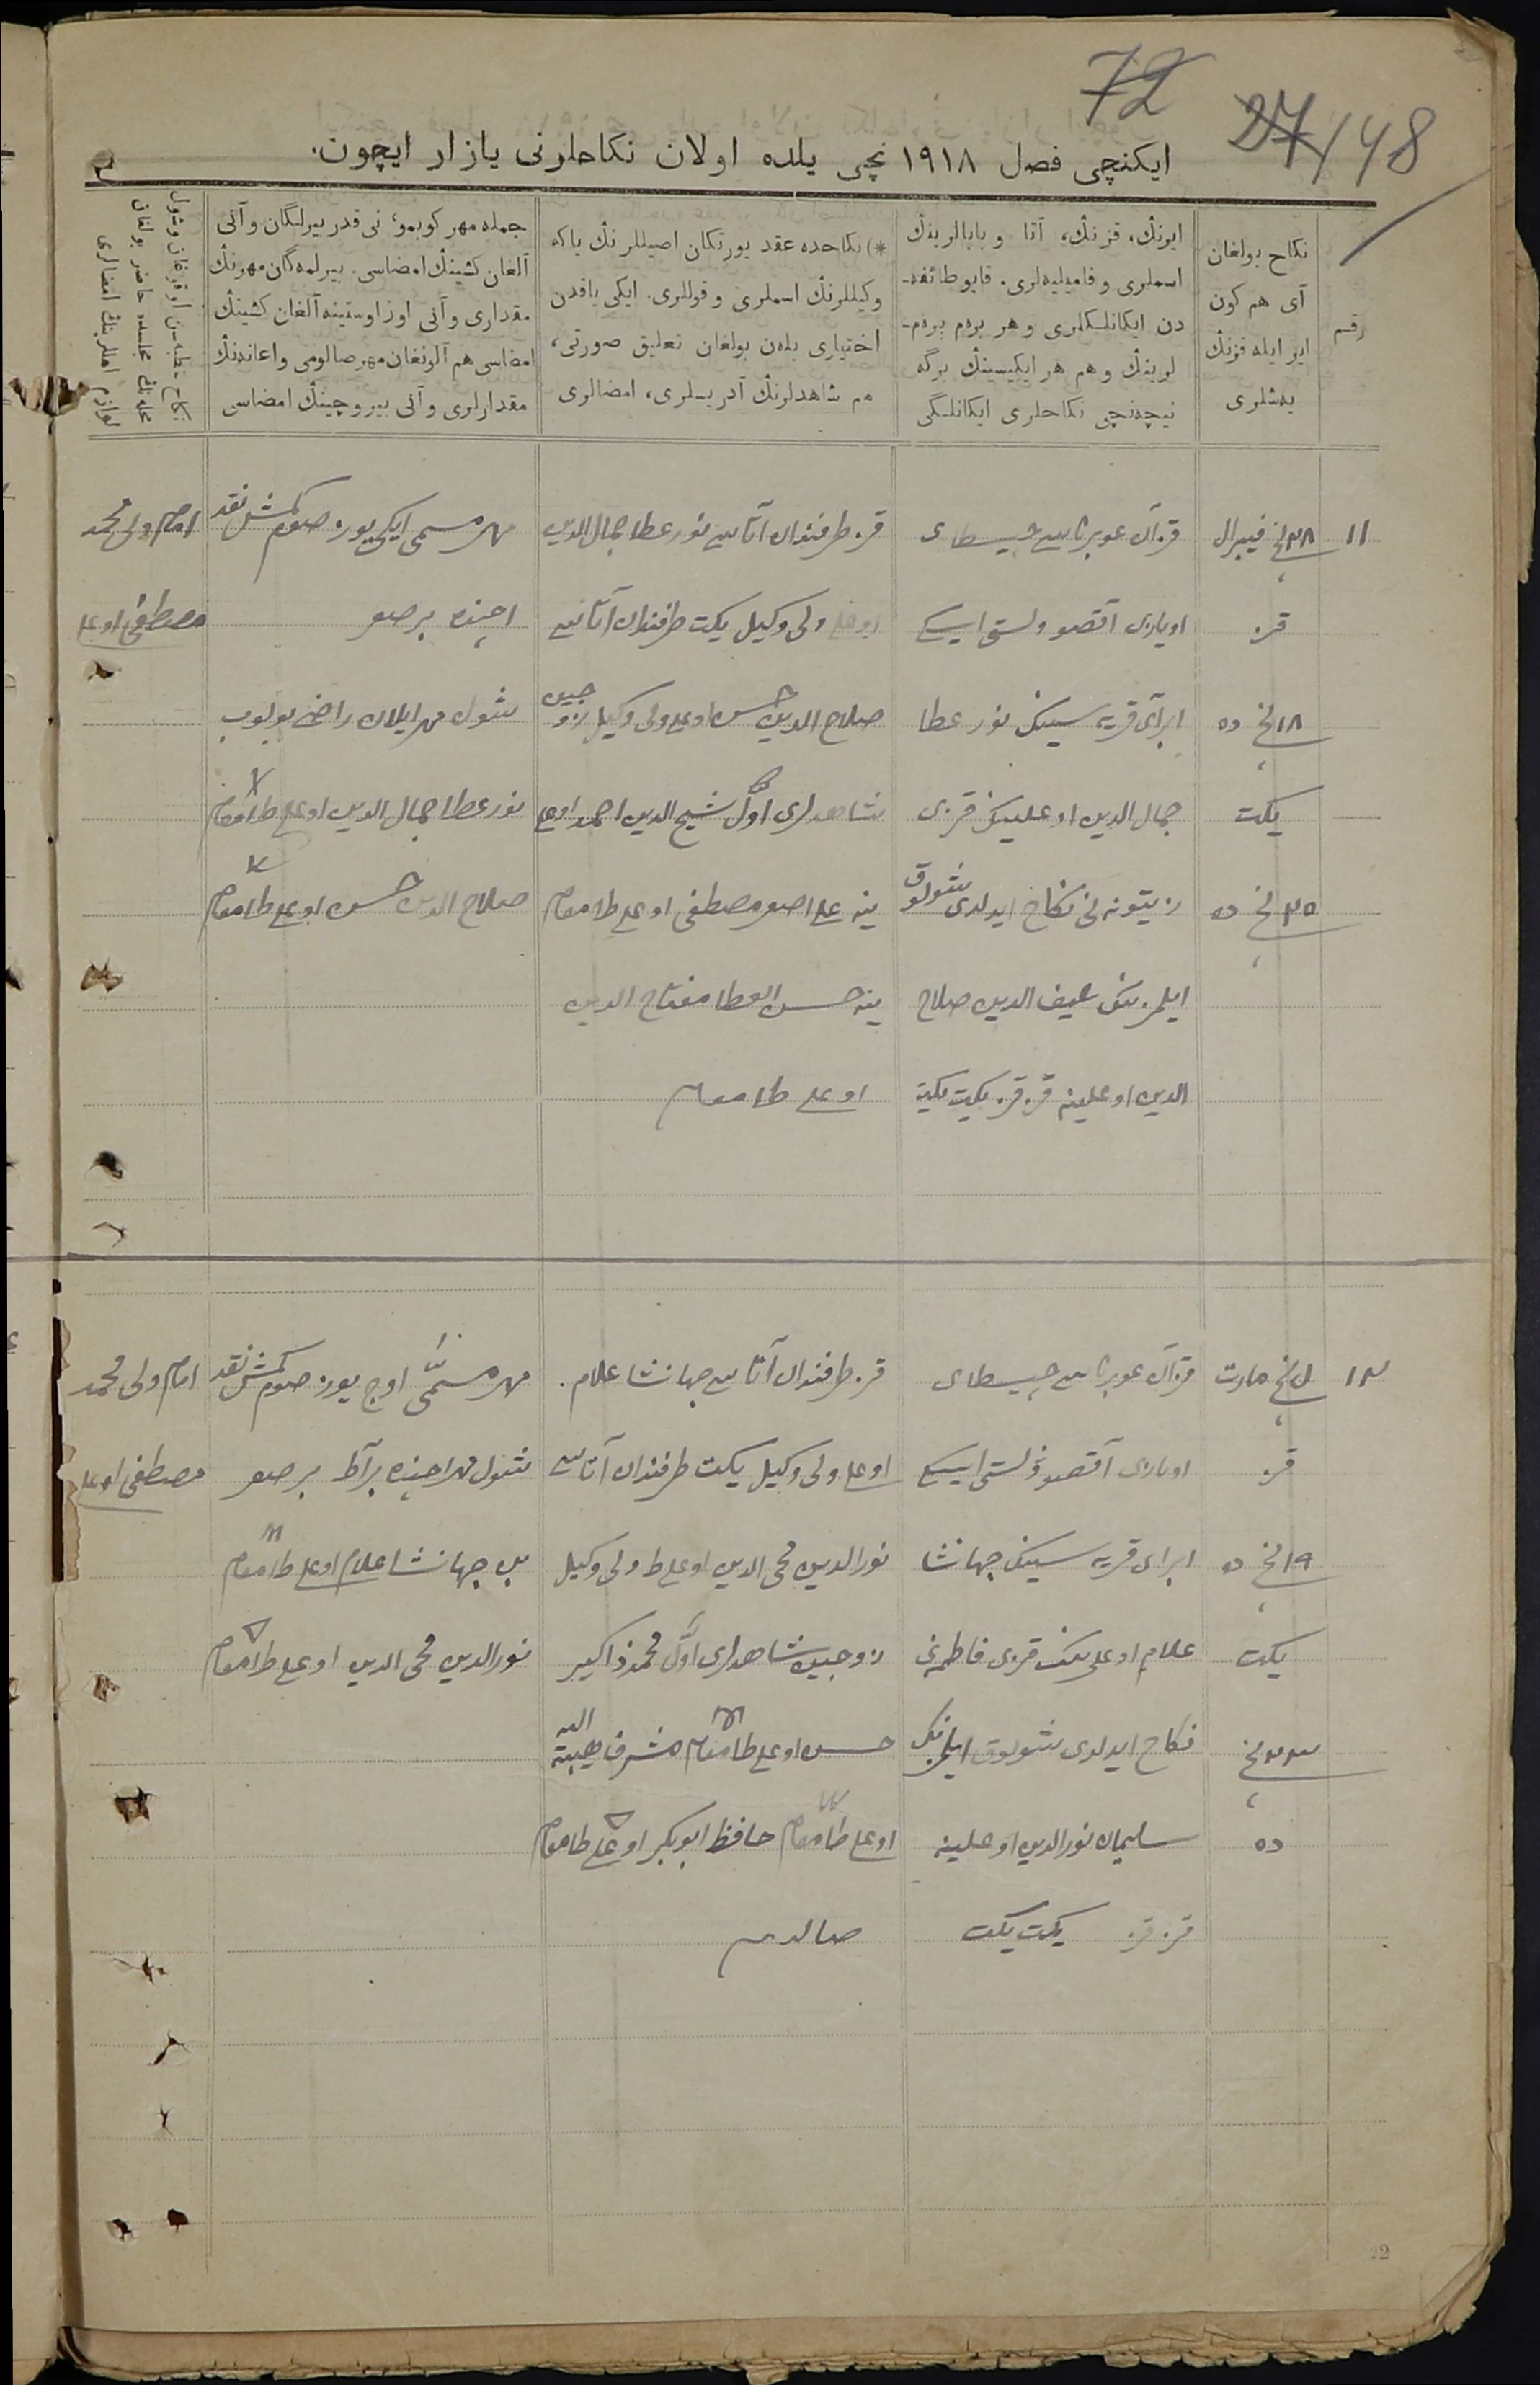 72
27/48
ایکنچی فصل ۱۹۱۸ نچی یلده اولان نکاحلرنی یازار ایچون.
رقم
نکاح بولغان
آی هم کون
ایر ایله قزنڭ
یەشلری
ایرنڭ، قزنڭ، آتا و بابالرینڭ
اسملری و فامیلیەلری. قایو طائفە-
دن ایکانلکلری و هر برەم برەم-
لرینڭ و هم هر ایکیسینڭ برگە
نیچەنچی نکاحلری ایکانلگی
*) نکاحده عقد یورتکان اصیللرنڭ یا کە
وکیللرنڭ اسملری و قوللری. ایکی یاقدن
اختیاری بلەن بولغان تعلیق صورتی،
هم شاهدلرنڭ آدریسلری، امضالری
جملە مهر کوبمو، نی قدر بیرلگان و آنی
آلغان کشینڭ امضاسی. بیرلمەگان مهرنڭ
مقداری و آنی اوز اوستینە آلغان کشینڭ
امضاسی هم آلونغان مهر صالومی و اعانەنڭ
مقدارلری و آنی بیروچینڭ امضاسی
نکاح خطبەسن اوقوغان و شول
محلەنڭ مجلسده حاضر بولغان
لوازم اهللرینڭ امضالری
۱۱
۲۸ نچی فیبرال
قز
۱۸ نچی ده
یکت
۲۵ نچی ده
قزان غوبرناسی چیستای
اویازی آقصو ولستی ایسکی
ابرای قریەسینڭ نورعطا
جمال الدین اوغلینڭ قزی
زیتونەنی نکاح ایدلدی شولوق
ایلمزنڭ ضیف الدین صلاح
الدین اوغلینە قز قز یکیت یکیتە
قز طرفندان آتاسی نورعطا جمال الدین
اوغلی ولی وکیل یکت طرفندان آتاسی
صلاح الدین حسن اوغلی ولی وکیل زوجین
شاهدلری اول شیخ الدین احمد اوغلی
ینە علی اصغر مصطفی اوغلی طامغام
ینە حسن العطا مفتاح الدین
اوغلی طامغام
مهر مسمی ایکی یوز صوم کمش نقد
اچندە بر صغر
شول مهر ایلان راضی بولوب
نورعطا جمال الدین اوغلی طامغام
صلاح الدین حسن اوغلی طامغام
امام ولی محمد
مصطفی اوغلی
۱۲
نچی مارت
قز
۱۹ نچی ده
یکت
۲۳ نچی
ده
قزان غوبرناسی چیستای
اویازی آقصو ولستی ایسکی
ابرای قریەسینڭ جهانشا
علام اوغلینڭ قزی فاطمەنی
نکاح ایدلدی شولوق ایلمزنڭ
سلیمان نورالدین اوغلینە
قز قز یکت یکت
قز طرفندان آتاسی جهانشا علام
اوغلی ولی وکیل یکت طرفندان آتاسی
نورالدین محی الدین اوغلی ط ولی وکیل
زوجین شاهدلری اول محمد ذاکیر
حسن اوغلی طامغام مشرف هبة الله
اوغلی طامغام حافظ ابوبکر اوغلی طامغام
صالدم
مهر مسمی اوچ یوز صوم کمش نقد
شول مهر اچندە بر آط بر صغر
بن جهانشا علام اوغلی طامغام
نورالدین محی الدین اوغلی طامغام
امام ولی محمد
مصطفی اوغلی
22